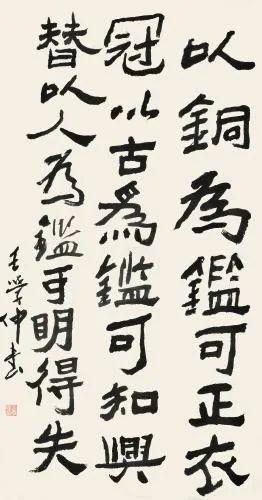 以銅為鑑可正衣
冠以古爲鑑可知興
替以人為鑑可明得失
王學仲書